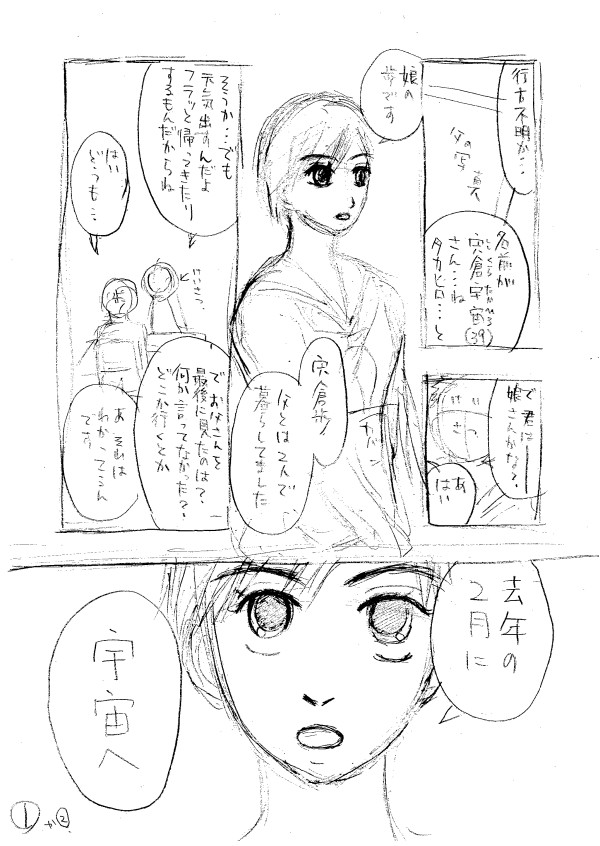 行方不明か…
父の写真
名前が
宍倉宇宙(39)
ししくらたかひろ
さん…ね
タカヒロ…と
で君は
娘さんかな?
けいさつ
あ
はい
娘の
歩です
宍倉歩
父とは2人で
暮らしてました
カバン
そっか…でも
元気出すんだよ
フラッと帰ってきたり
するもんだからね
はい
どうも…
けいさつ
歩
で お父さんを
最後に見たのは?
何か言ってなかった?
どこか行くとか
あ それは
わかってるん
です
去年の
2月に
宇宙へ
①